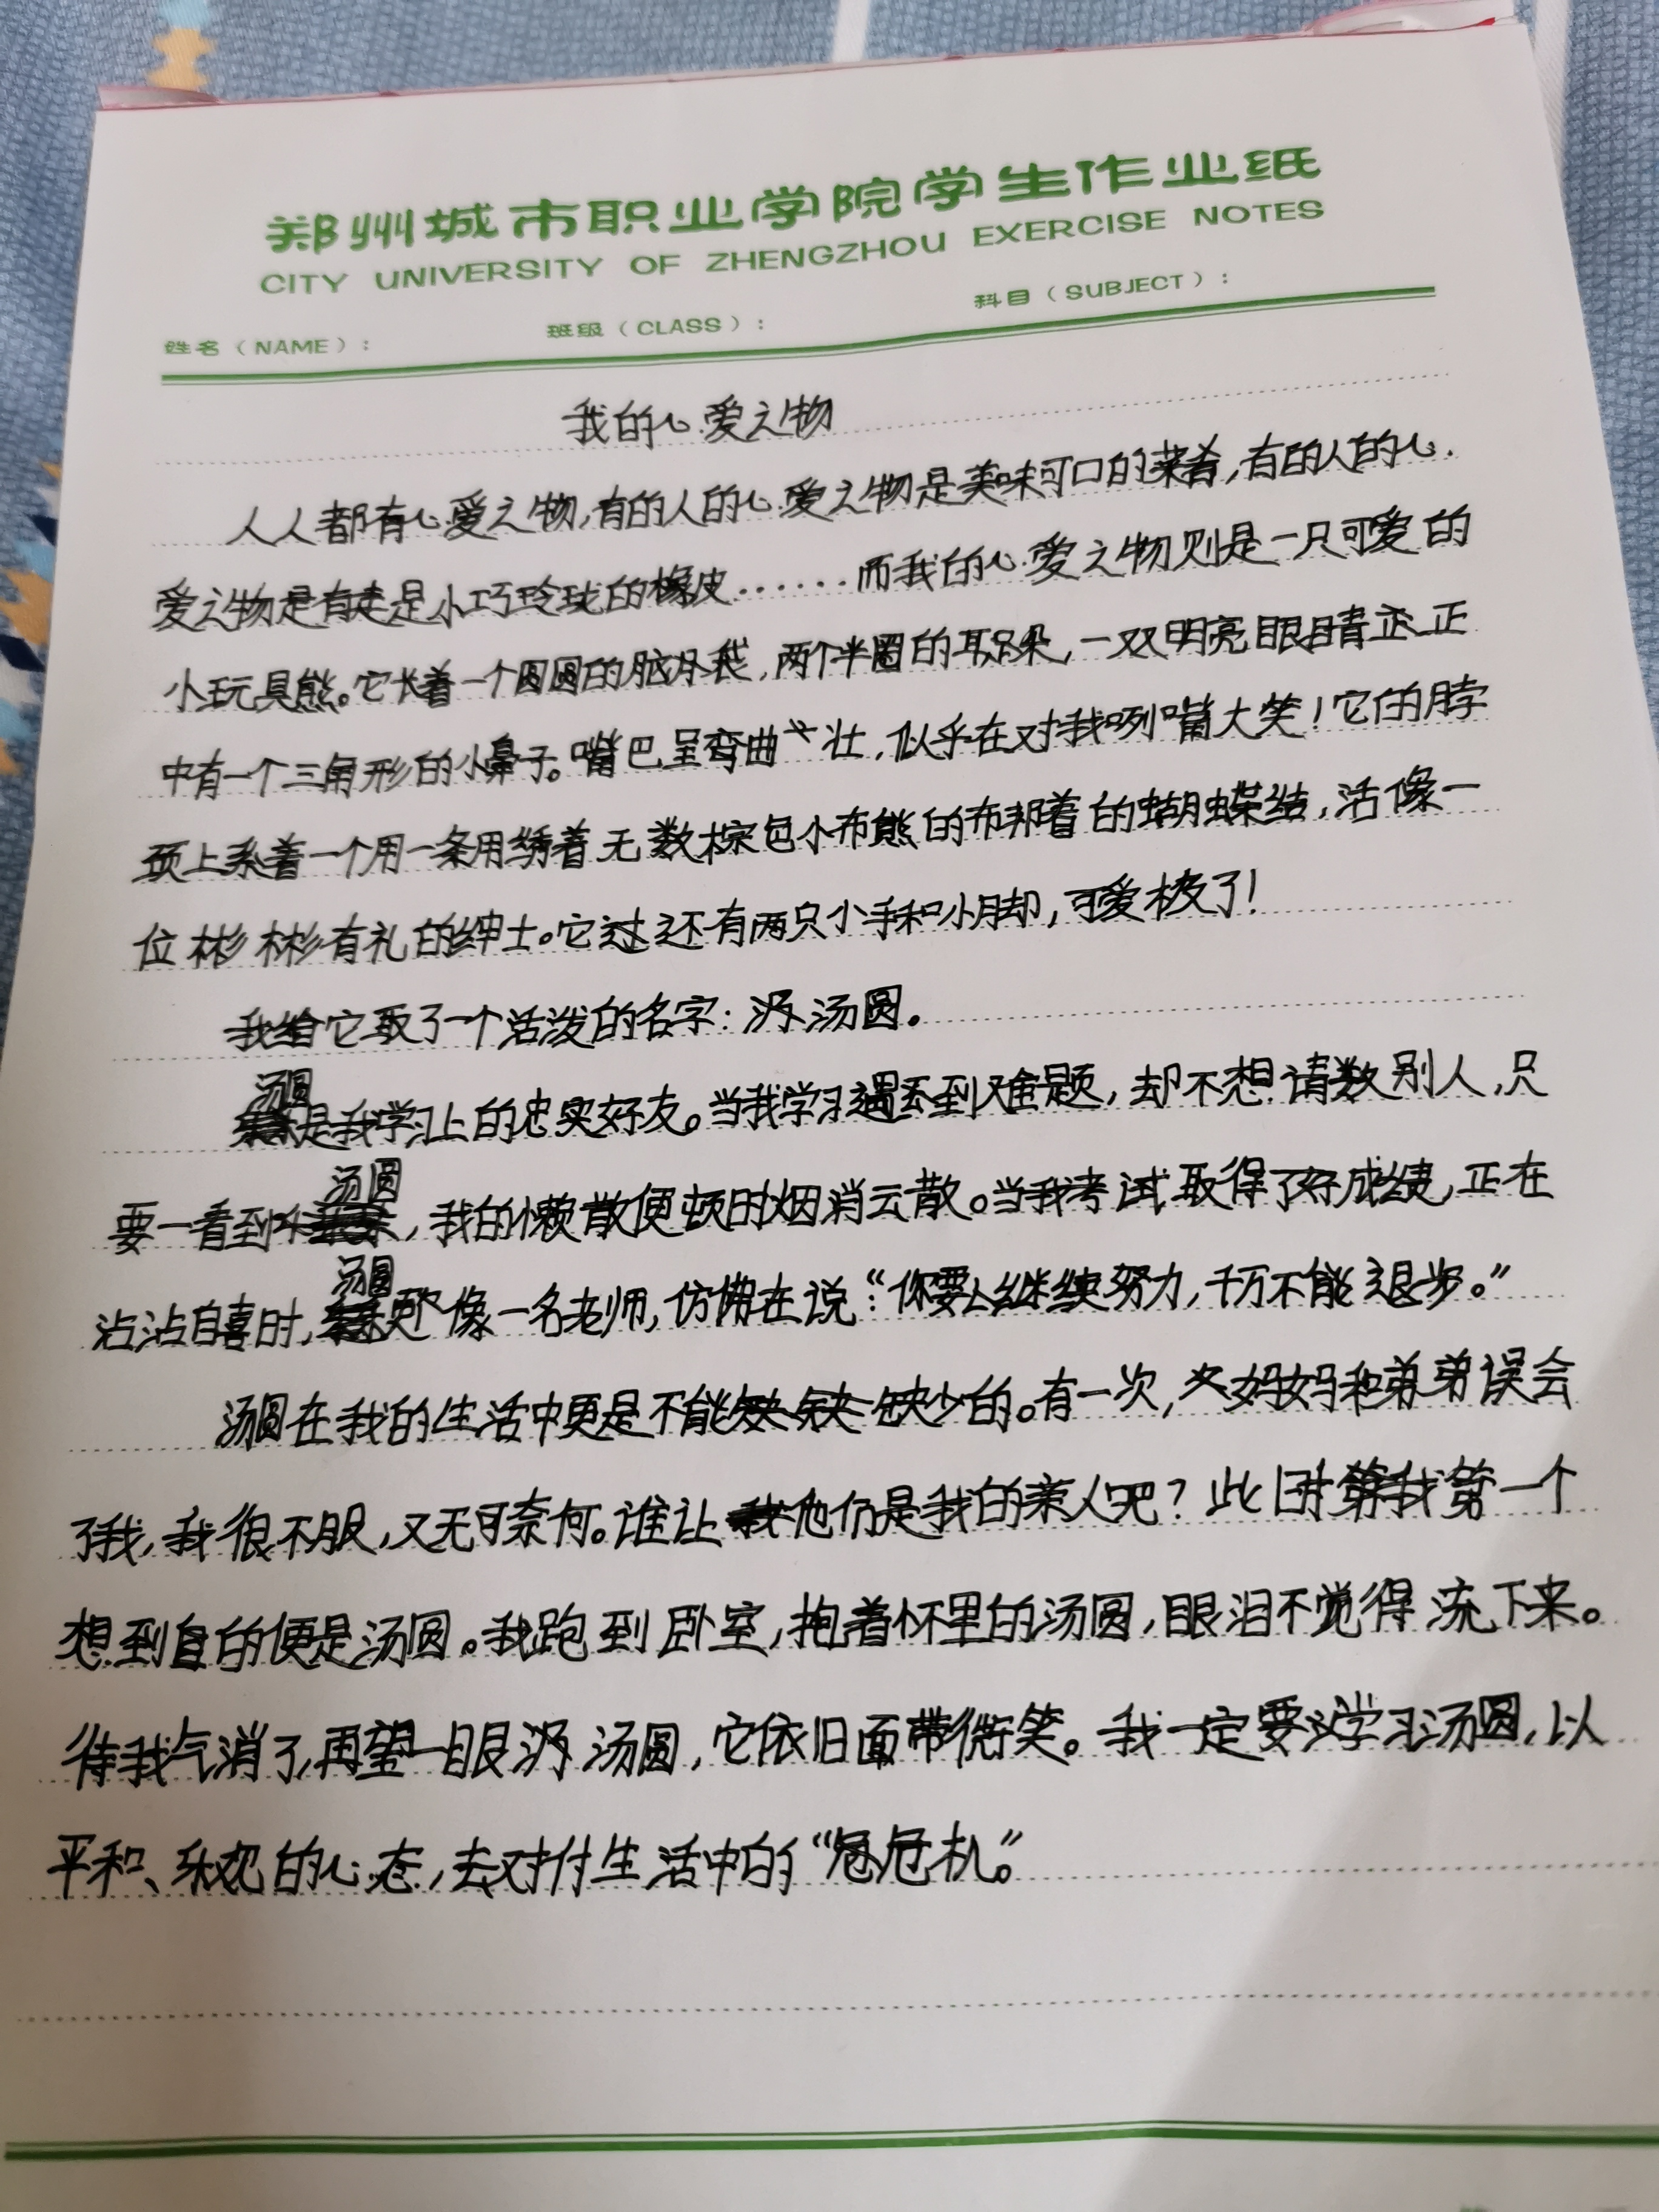 郑州城市职业学院学生作业纸
CITY UNIVERSITY OF ZHENGZHOU EXERCISE NOTES
姓名（NAME）： 班级（CLASS）： 科目（SUBJECT）：
我的心爱之物
人人都有心爱之物,有的人的心爱之物是美味可口的菜肴,有的人的心
爱之物是小巧玲珑的橡皮……而我的心爱之物则是一只可爱的
小玩具熊。它长着一个圆圆的脑袋,两个半圆的耳朵,一双明亮眼睛正
中有一个三角形的小鼻子。嘴巴呈弯曲壮,似乎在对我咧嘴大笑!它的脖
颈上系着一个用一条用绣着无数棕色小布熊的布绑着的蝴蝶结,活像一
位彬彬有礼的绅士。它还有两只小手和小脚,可爱极了!
我给它取了一个活泼的名字:汤圆。
汤圆是我学习上的忠实好友。当我学习遇到难题,却不想请教别人,只
要一看到汤圆,我的懒散便顿时烟消云散。当我考试取得了好成绩,正在
沾沾自喜时,汤圆更像一名老师,仿佛在说:“你要继续努力,千万不能退步。”
汤圆在我的生活中更是不能缺少的。有一次,妈妈和弟弟误会
了我,我很不服,又无可奈何。谁让他们是我的亲人吧?此时我第一个
想到自的便是汤圆。我跑到卧室,抱着怀里的汤圆,眼泪不觉得流下来。
待我气消了,再望一眼汤圆,它依旧面带微笑。我一定要学习汤圆,以
平和、乐观的心态,去对付生活中的“危机”。